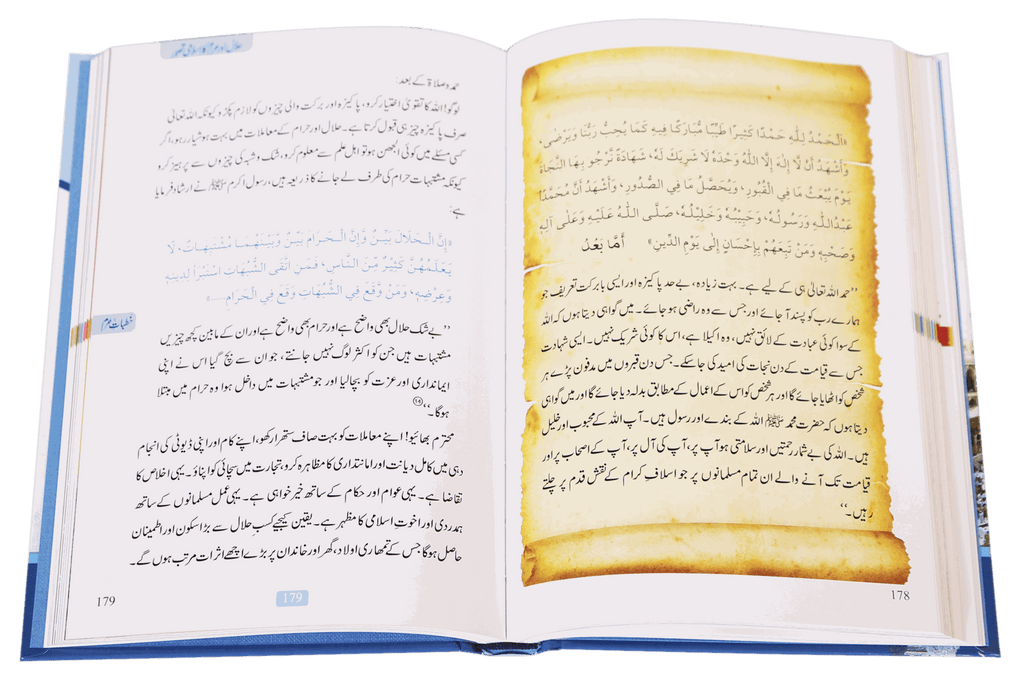 «اَلْحَمْدُ لِلّٰهِ حَمْدًا كَثِيرًا طَيِّبًا مُبَارَكًا فِيهِ كَمَا يُحِبُّ رَبُّنَا وَيَرْضٰى،
وَأَشْهَدُ أَنْ لَّا إِلٰهَ إِلَّا اللّٰهُ وَحْدَهُ لَا شَرِيكَ لَهُ، شَهَادَةً نَّرْجُو بِهَا النَّجَاةَ
يَوْمَ يُبْعَثُ مَا فِي الْقُبُورِ، وَيُحَصَّلُ مَا فِي الصُّدُورِ، وَأَشْهَدُ أَنَّ مُحَمَّدًا
عَبْدُاللّٰهِ وَرَسُولُهُ، وَحَبِيبُهُ وَخَلِيلُهُ، صَلَّى اللّٰهُ عَلَيْهِ وَعَلٰى آلِهِ
وَصَحْبِهِ وَمَنْ تَبِعَهُمْ بِإِحْسَانٍ إِلٰى يَوْمِ الدِّينِ» أَمَّا بَعْدُ
’’حمد اللہ تعالیٰ ہی کے لیے ہے۔ بہت زیادہ، بے حد پاکیزہ اور ایسی بابرکت تعریف جو
ہمارے رب کو پسند آ جائے اور جس سے وہ راضی ہو جائے۔ میں گواہی دیتا ہوں کہ اللہ
کے سوا کوئی عبادت کے لائق نہیں، وہ اکیلا ہے، اس کا کوئی شریک نہیں۔ ایسی شہادت
جس سے قیامت کے دن نجات کی امید کی جا سکے۔ جس دن قبروں میں مدفون پڑے ہر
شخص کو اٹھایا جائے گا اور ہر شخص کو اس کے اعمال کے مطابق بدلہ دیا جائے گا اور میں گواہی
دیتا ہوں کہ حضرت محمد ﷺ اللہ کے بندے اور رسول ہیں۔ آپ اللہ کے محبوب اور خلیل
ہیں۔ اللہ کی بے شمار رحمتیں اور سلامتی ہو آپ پر، آپ کی آل پر، آپ کے اصحاب پر اور
قیامت تک آنے والے ان تمام مسلمانوں پر جو اسلافِ کرام کے نقش قدم پر چلتے
رہیں۔‘‘
178
حلال اور حرام کا اسلامی تصور
حمد و صلاة کے بعد:
لوگو! اللہ کا تقویٰ اختیار کرو، پاکیزہ اور برکت والی چیزوں کو لازم پکڑو کیونکہ اللہ تعالیٰ
صرف پاکیزہ چیز ہی قبول کرتا ہے۔ حلال اور حرام کے معاملات میں بہت ہوشیار رہو، اگر
کسی مسئلے میں کوئی الجھن ہو تو اہل علم سے معلوم کرو، شک و شبہ کی چیزوں سے پرہیز کرو
کیونکہ مشتبہات حرام کی طرف لے جانے کا ذریعہ ہیں، رسول اکرم ﷺ نے ارشاد فرمایا
ہے:
«إِنَّ الْحَلَالَ بَيِّنٌ وَإِنَّ الْحَرَامَ بَيِّنٌ وَبَيْنَهُمَا مُشْتَبِهَاتٌ، لَا
يَعْلَمُهُنَّ كَثِيرٌ مِّنَ النَّاسِ، فَمَنِ اتَّقَى الشُّبُهَاتِ اسْتَبْرَأَ لِدِينِهِ
وَعِرْضِهِ، وَمَنْ وَّقَعَ فِي الشُّبُهَاتِ وَقَعَ فِي الْحَرَامِ....»
’’بے شک حلال بھی واضح ہے اور حرام بھی واضح ہے اور ان کے مابین کچھ چیزیں
مشتبہات ہیں جن کو اکثر لوگ نہیں جانتے، جو ان سے بچ گیا اس نے اپنی
ایمانداری اور عزت کو بچالیا اور جو مشتبہات میں داخل ہوا وہ حرام میں مبتلا
ہوگا۔‘‘
محترم بھائیو! اپنے معاملات کو بہت صاف ستھرا رکھو، اپنے کام اور اپنی ڈیوٹی کی انجام
دہی میں کامل دیانت اور امانتداری کا مظاہرہ کرو، تجارت میں سچائی کو اپناؤ۔ یہی اخلاص کا
تقاضا ہے۔ یہی عوام اور حکام کے ساتھ خیر خواہی ہے۔ یہی عمل مسلمانوں کے ساتھ
ہمدردی اور اخوتِ اسلامی کا مظہر ہے۔ یقین کیجیے کسبِ حلال سے بڑا سکون اور اطمینان
حاصل ہوگا جس کے تمھاری اولاد، گھر اور خاندان پر بڑے اچھے اثرات مرتب ہوں گے۔
خطبات حرم
179
179